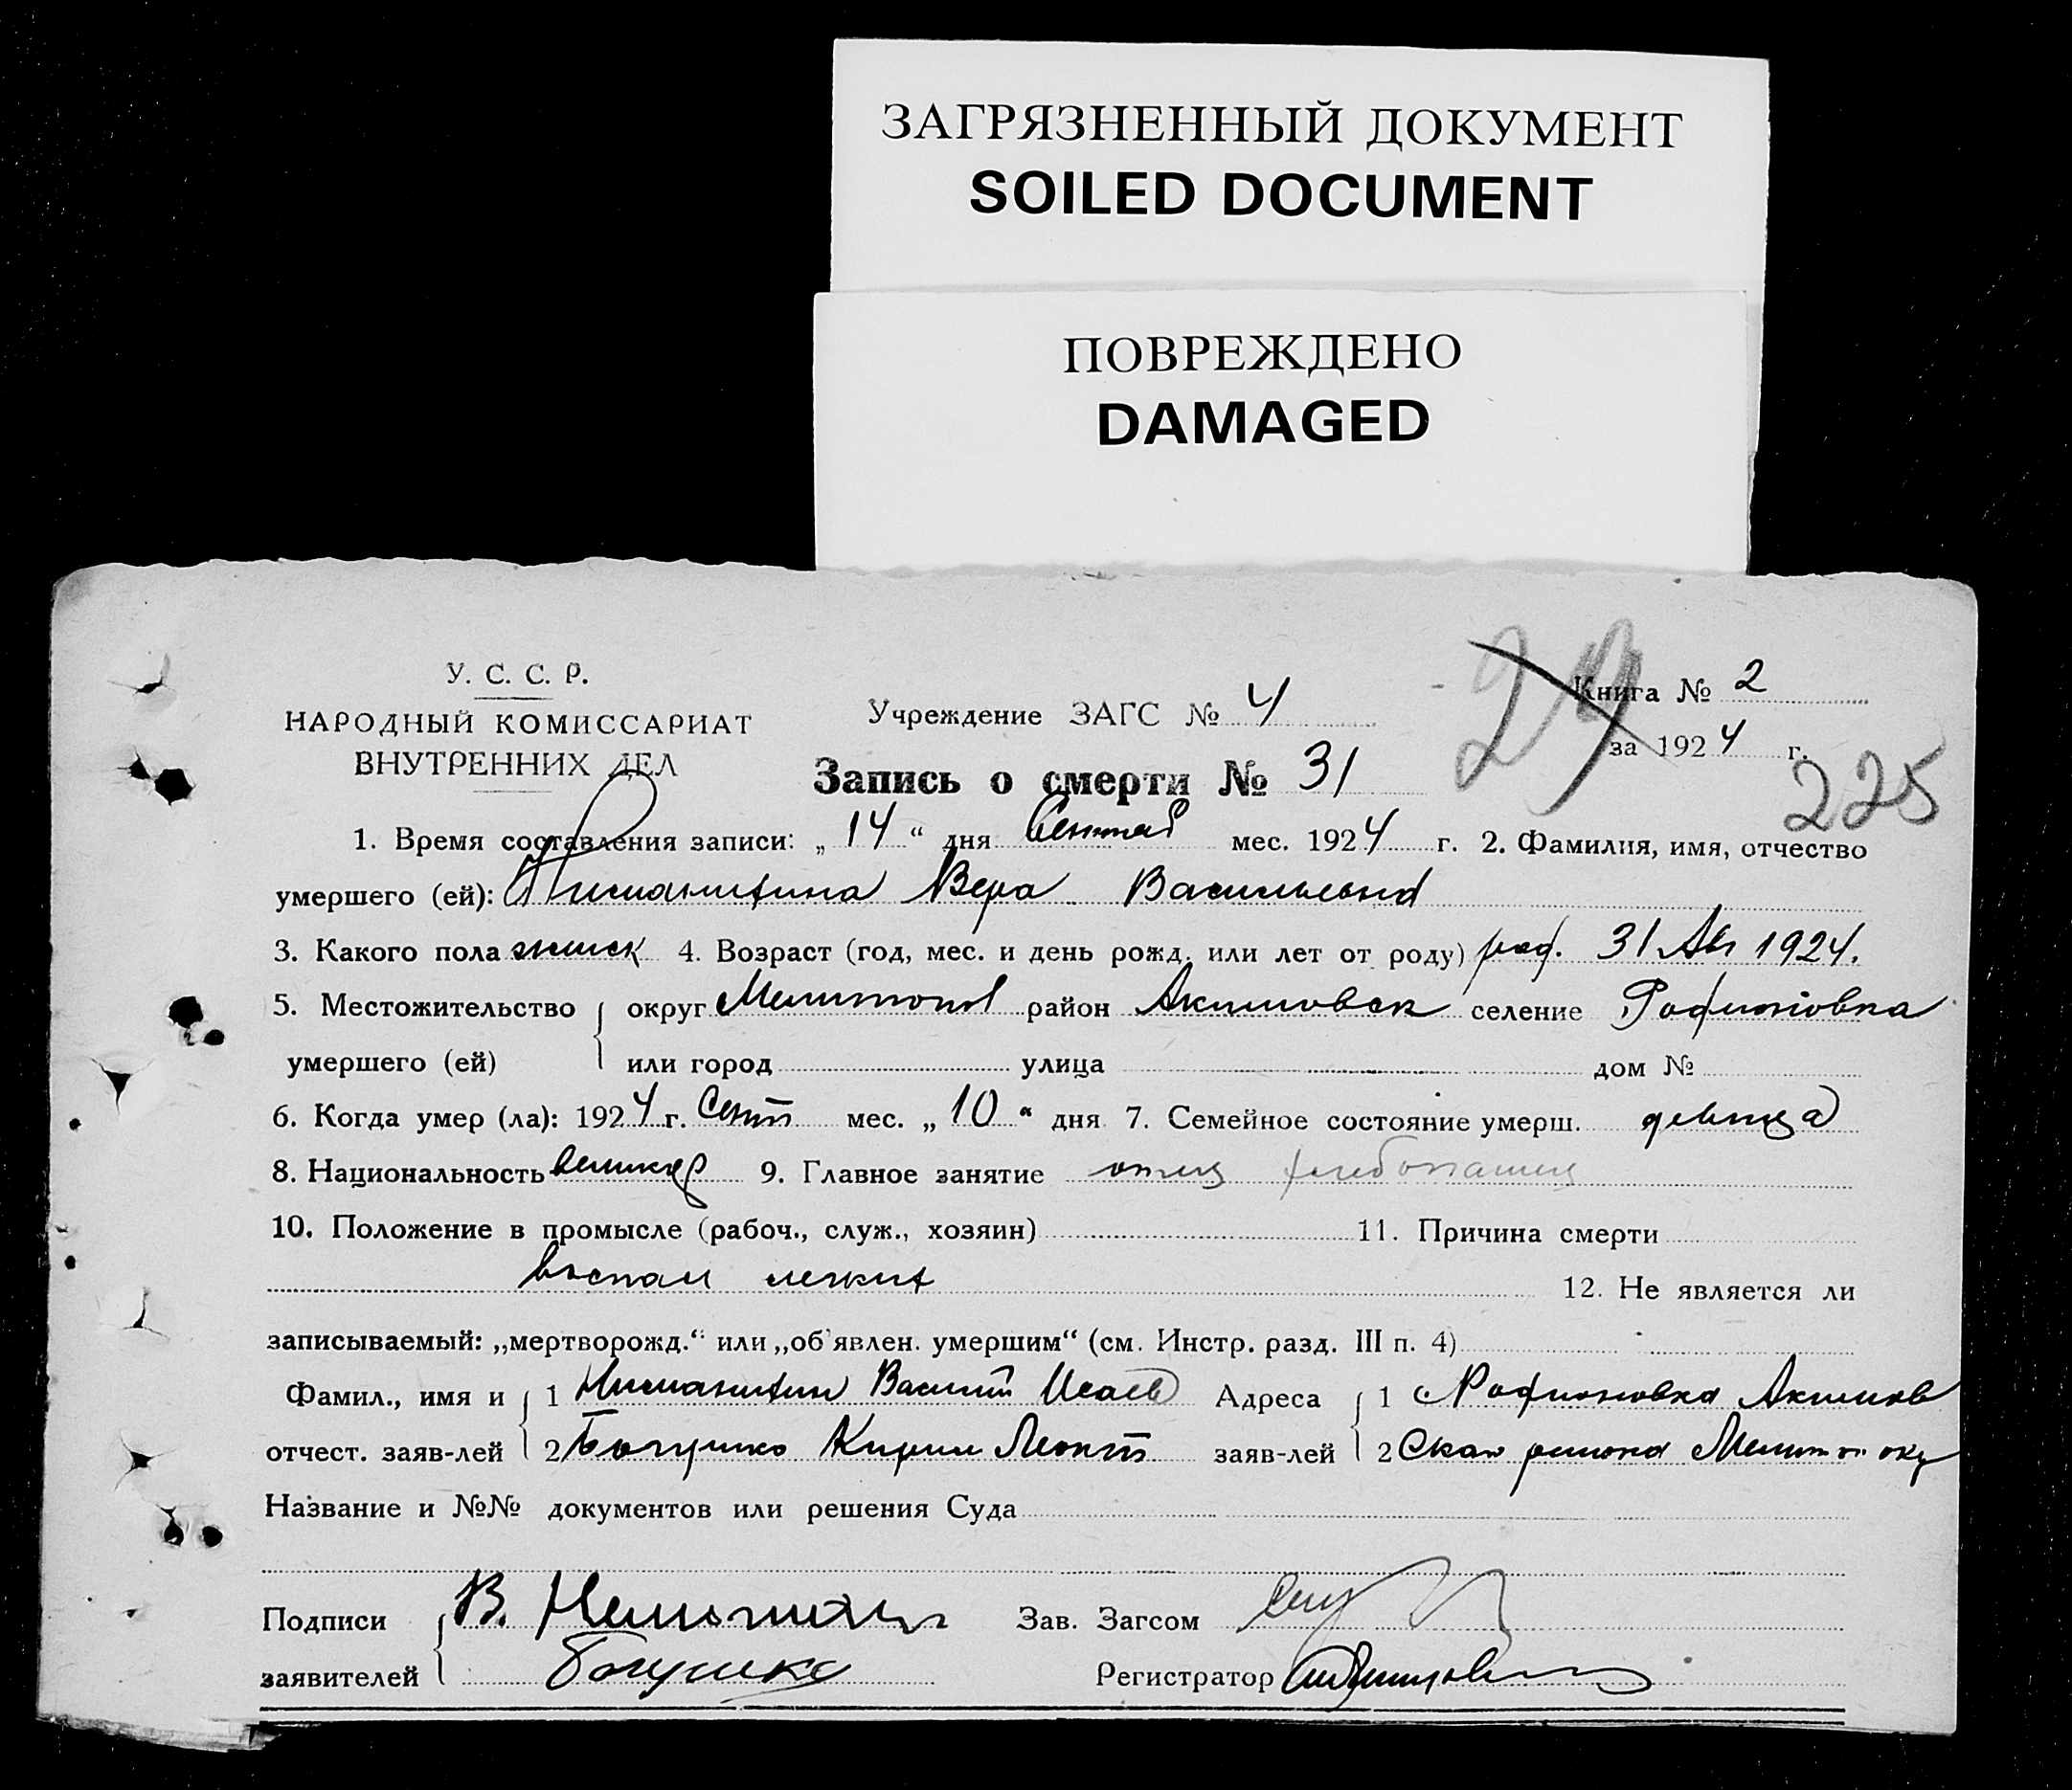 ЗАГРЯЗНЕННЫЙ ДОКУМЕНТ
SOILED DOCUMENT
ПОВРЕЖДЕНО
DAMAGED
У. С. С. Р.
НАРОДНЫЙ КОМИССАРИАТ
ВНУТРЕННИХ ДЕЛ
Учреждение ЗАГС № 4
29
Книга № 2
за 1924 г.
225
Запись о смерти № 31
1. Время составления записи: „14“ дня мес. 1924 г. 2. Фамилия, имя, отчество
умершего (ей): Вера Васильевна
3. Какого пола женск 4. Возраст (год, мес. и день рожд. или лет от роду) род. 31 Авг 1924.
5. Местожительство округ Мелитопол район Акимовск селение Родионовка
умершего (ей) или город улица дом №
6. Когда умер (ла): 1924 г. Сент мес. „10“ дня 7. Семейное состояние умерш. девица
8. Национальность великор 9. Главное занятие отец хлебопашец
10. Положение в промысле (рабоч., служ., хозяин) 11. Причина смерти
воспал легких 12. Не является ли
записываемый: „мертворожд.“ или „об'явлен. умершим“ (см. Инстр. разд. III п. 4)
Фамил., имя и 1 Василий Исаев Адреса 1 Родионовка Акимов
отчест. заяв-лей 2 Кирил Леонт заяв-лей 2 Ского района Мелитоп окр
Название и №№ документов или решения Суда
Подписи В. Зав. Загсом
заявителей Регистратор